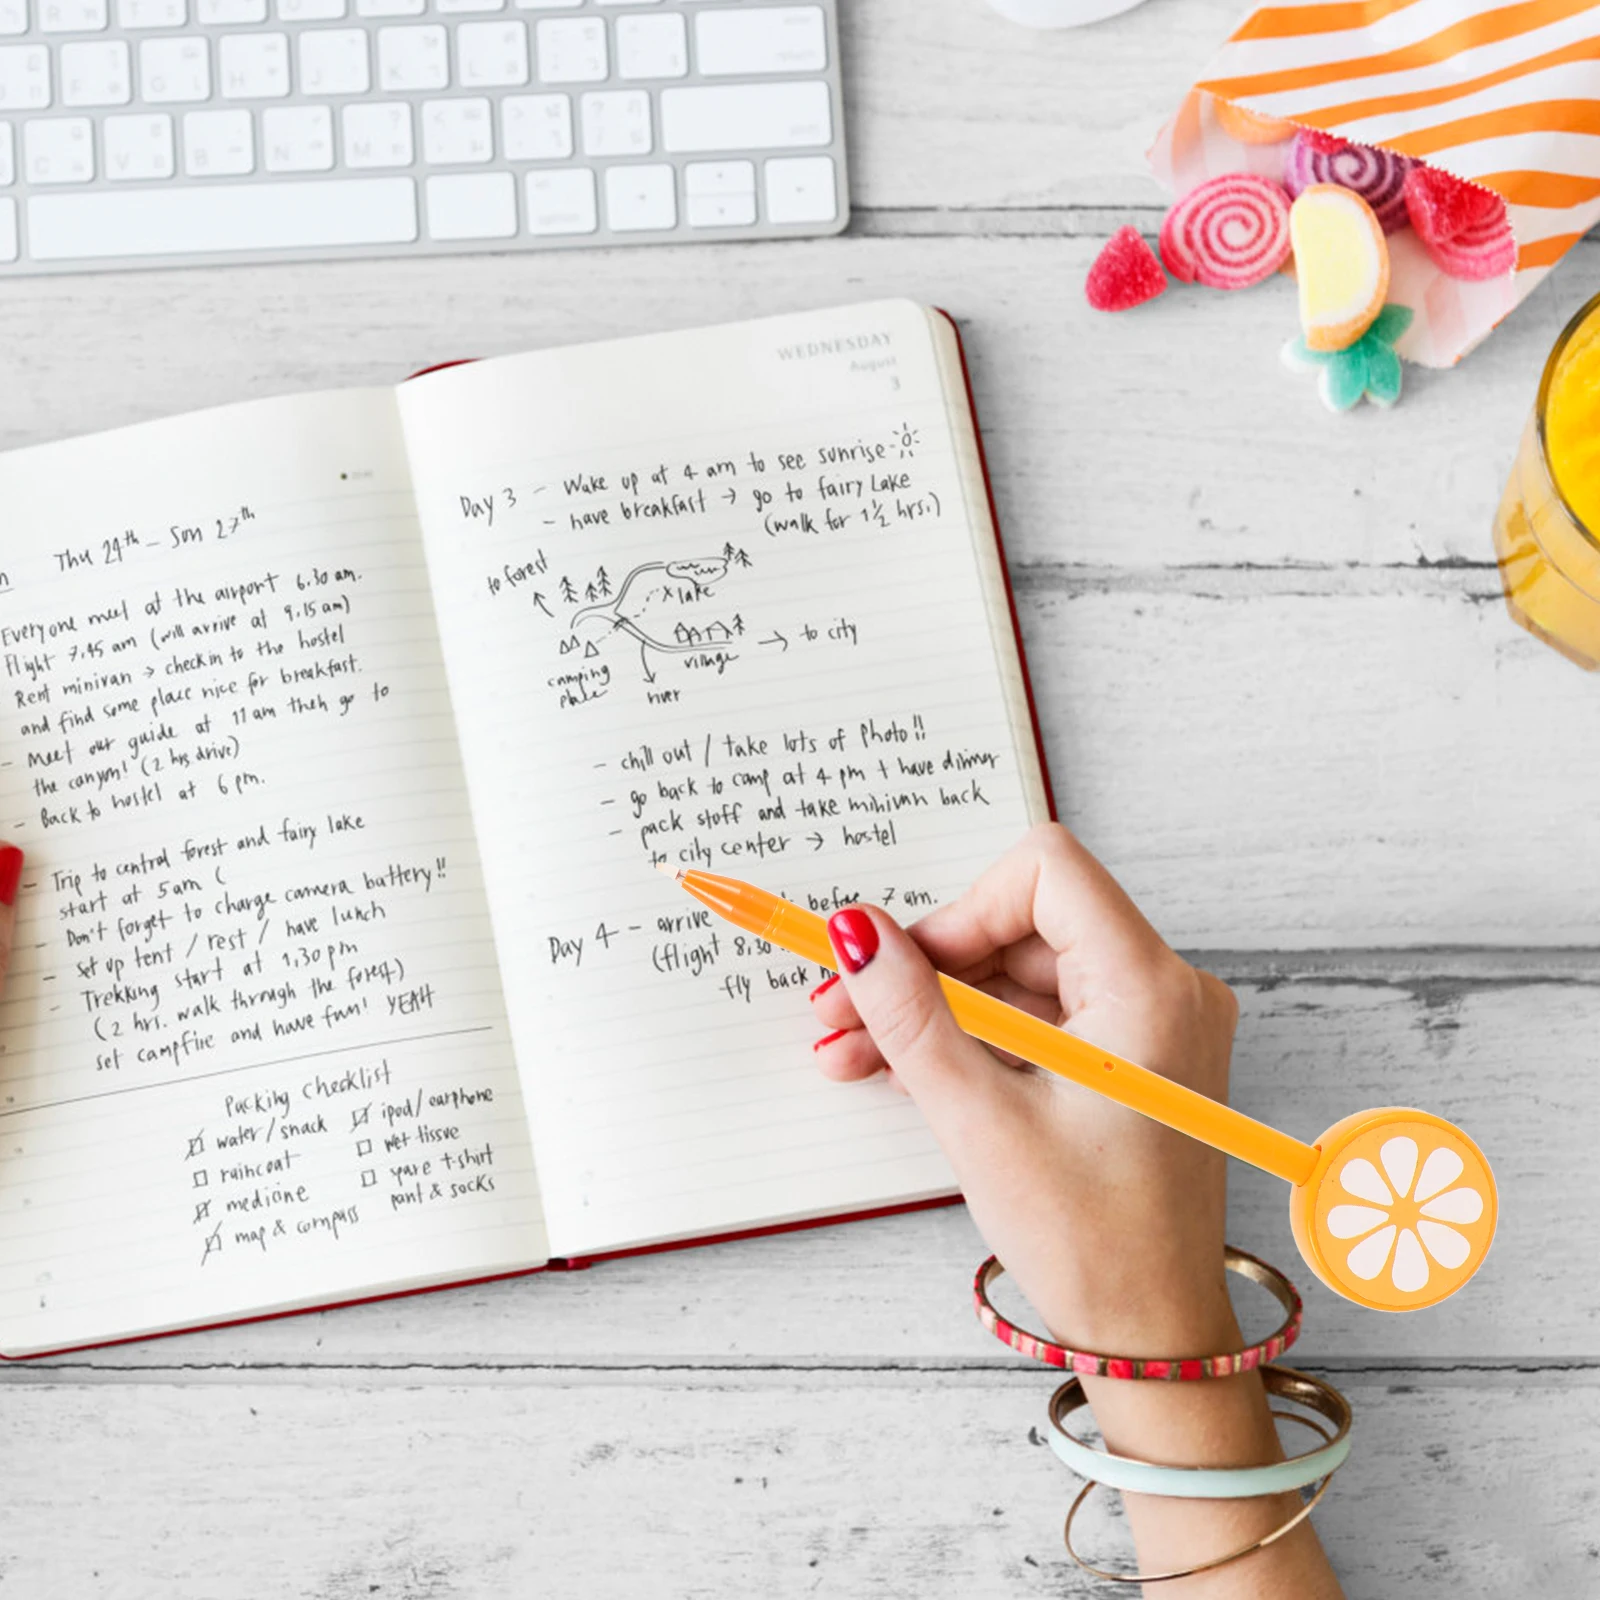 Thu 24th – Sun 27th
Everyone meet at the airport 6.30 am.
Flight 7.45 am (will arrive at 9.15 am)
Rent minivan → check in to the hostel
and find some place nice for breakfast.
- Meet our guide at 11 am then go to
the canyon! (2 hrs drive)
- Back to hostel at 6 pm.
- Trip to central forest and fairy lake
start at 5 am (
- Don't forget to charge camera battery!!
- Set up tent / rest / have lunch
- Trekking start at 1,30 pm
(2 hrs. walk through the forest)
set campfire and have fun! YEAH
Packing checklist
water / snack
raincoat
medicine
map & compass
ipod / earphone
wet tissue
spare t-shirt
pant & socks
WEDNESDAY
August
3
Day 3 - Wake up at 4 am to see sunrise
- have breakfast → go to fairy Lake
(walk for 1½ hrs.)
to forest
x lake
camping
place
river
village
→ to city
- chill out / take lots of photo!!
- go back to camp at 4 pm + have dinner
- pack stuff and take minivan back
to city center → hostel
Day 4 - arrive before 7 am.
(flight 8,30
fly back